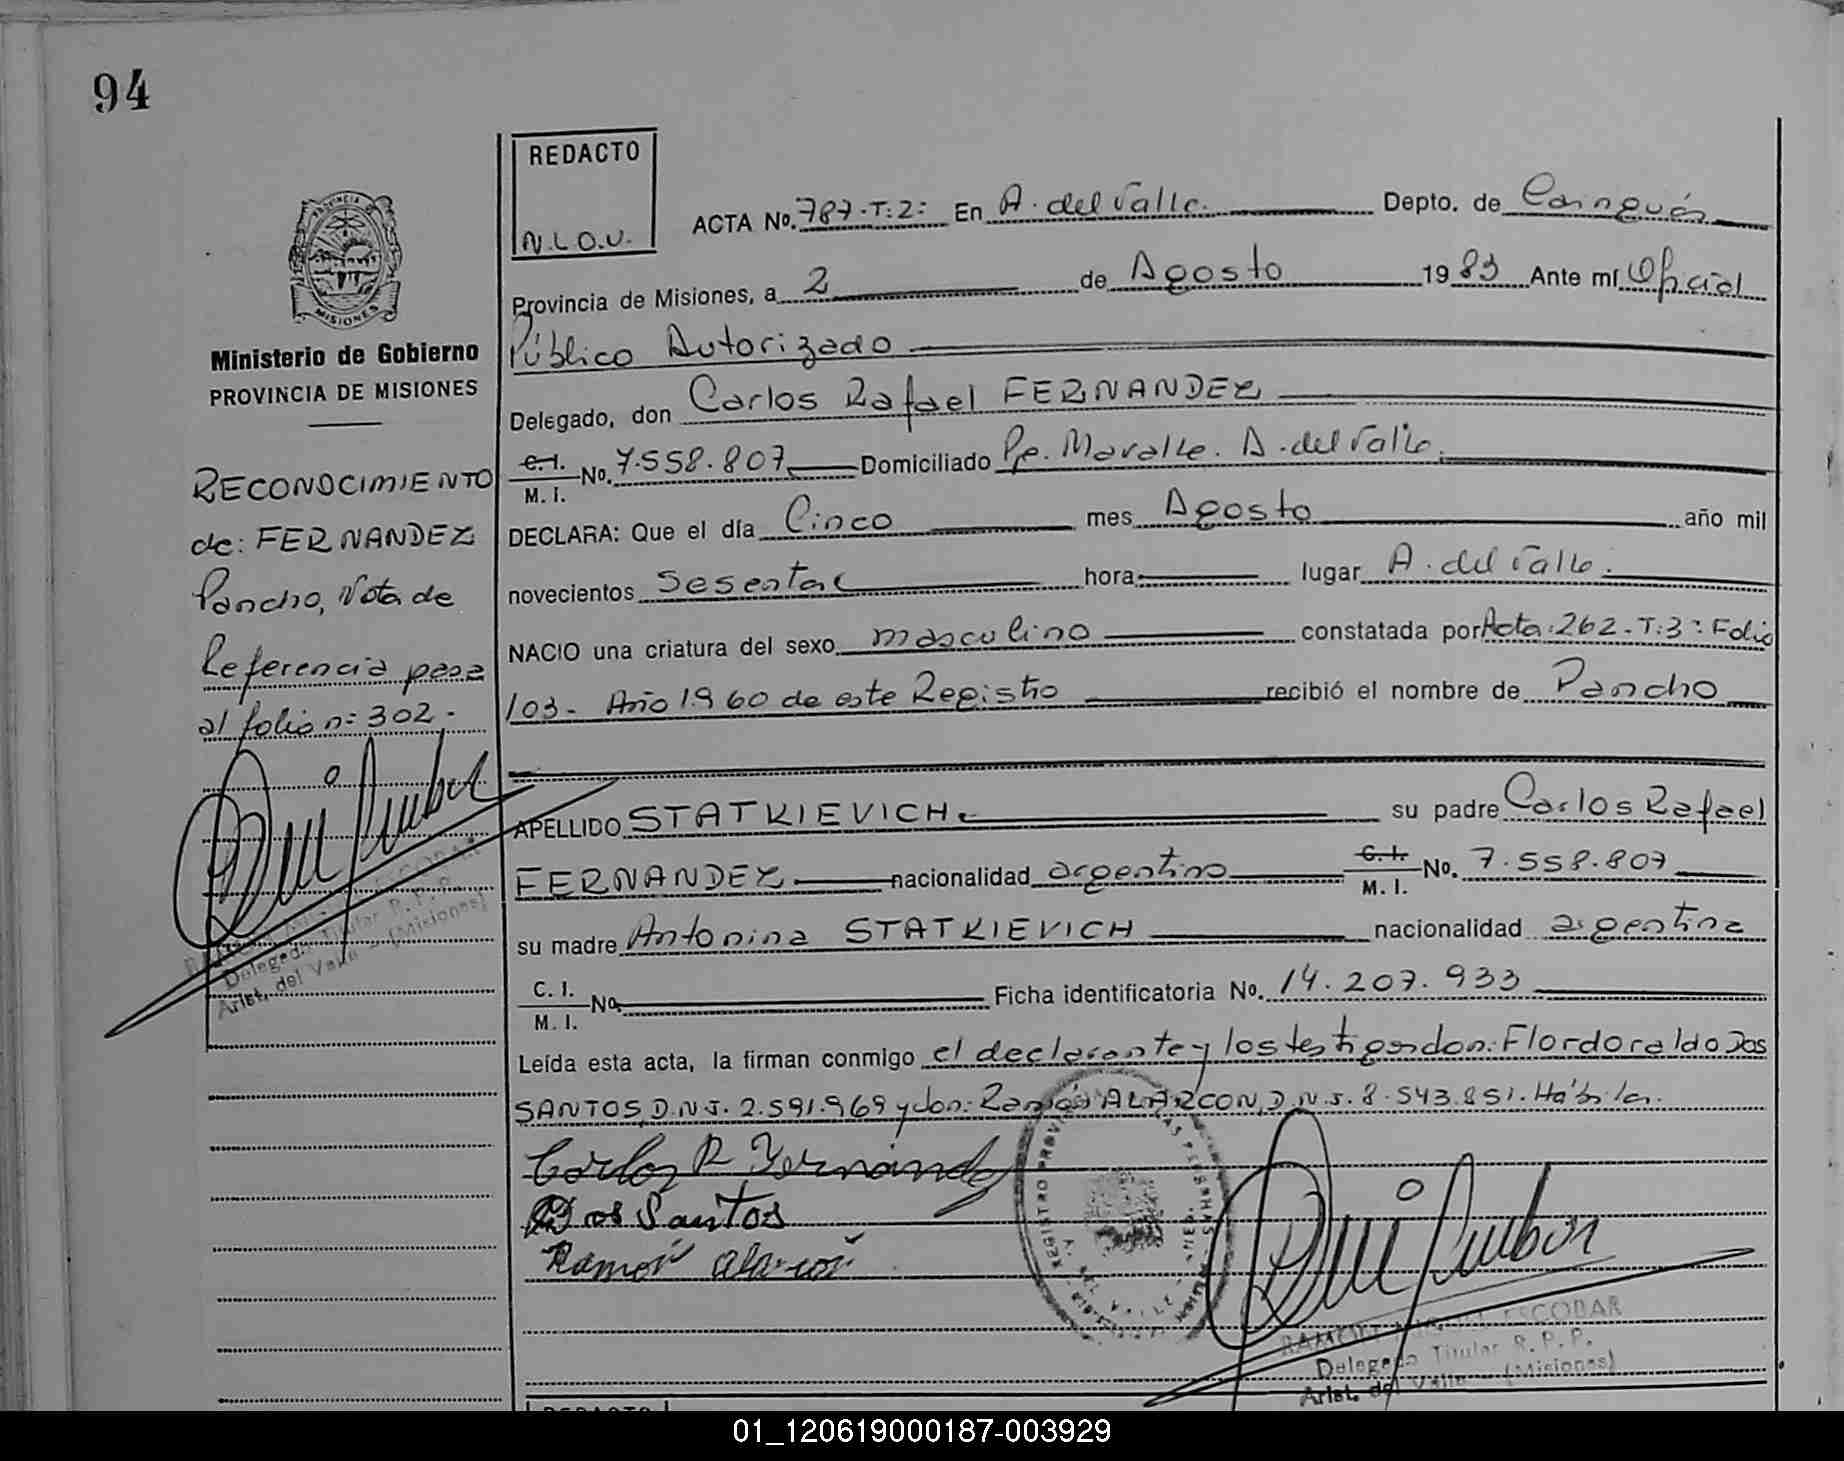 94
REDACTO
N.L.O.U.
PROVINCIA DE
MISIONES
Ministerio de Gobierno
PROVINCIA DE MISIONES
RECONOCIMIENTO
de: FERNANDEZ
Pancho, Nota de
Referencia pasa
al folio nº 302.-
Delegado Titular R. P. P.
Arist. del Valle - (Misiones)
ACTA No. 787-T:2º En A. del Valle. Depto. de Cainguás
Provincia de Misiones, a 2 de Agosto 1983 Ante mí Oficial
Público Autorizado
Delegado, don Carlos Rafael FERNANDEZ
C.I. M.I. No. 7.558.807 Domiciliado Pje. Maralle. A. del Valle.
DECLARA: Que el día Cinco mes Agosto año mil
novecientos Sesenta hora lugar A. del Valle.
NACIO una criatura del sexo masculino constatada por Acta: 262-T:3º Folio
103- Año 1960 de este Registro recibió el nombre de Pancho
APELLIDO STATKIEVICH. su padre Carlos Rafael
FERNANDEZ nacionalidad argentino C.I. M.I. No. 7.558.807
su madre Antonina STATKIEVICH nacionalidad argentina
C.I. M.I. No. Ficha identificatoria No. 14.207.933
Leída esta acta, la firman conmigo el declarante y los testigos don: Flordoraldo Dos
SANTOS, D.N.I. 2.591.969 y don: Ramón ALARCON, D.N.I. 8.543.851. Hábiles.
Carlos R Fernández
Dos Santos
Ramón Alarcón
REGISTRO PROVINCIAL DE LAS PERSONAS
A. DEL VALLE
RAMON MIGUEL ESCOBAR
Delegado Titular R. P. P.
Arist. del Valle - (Misiones)
REDACTO
01_120619000187-003929